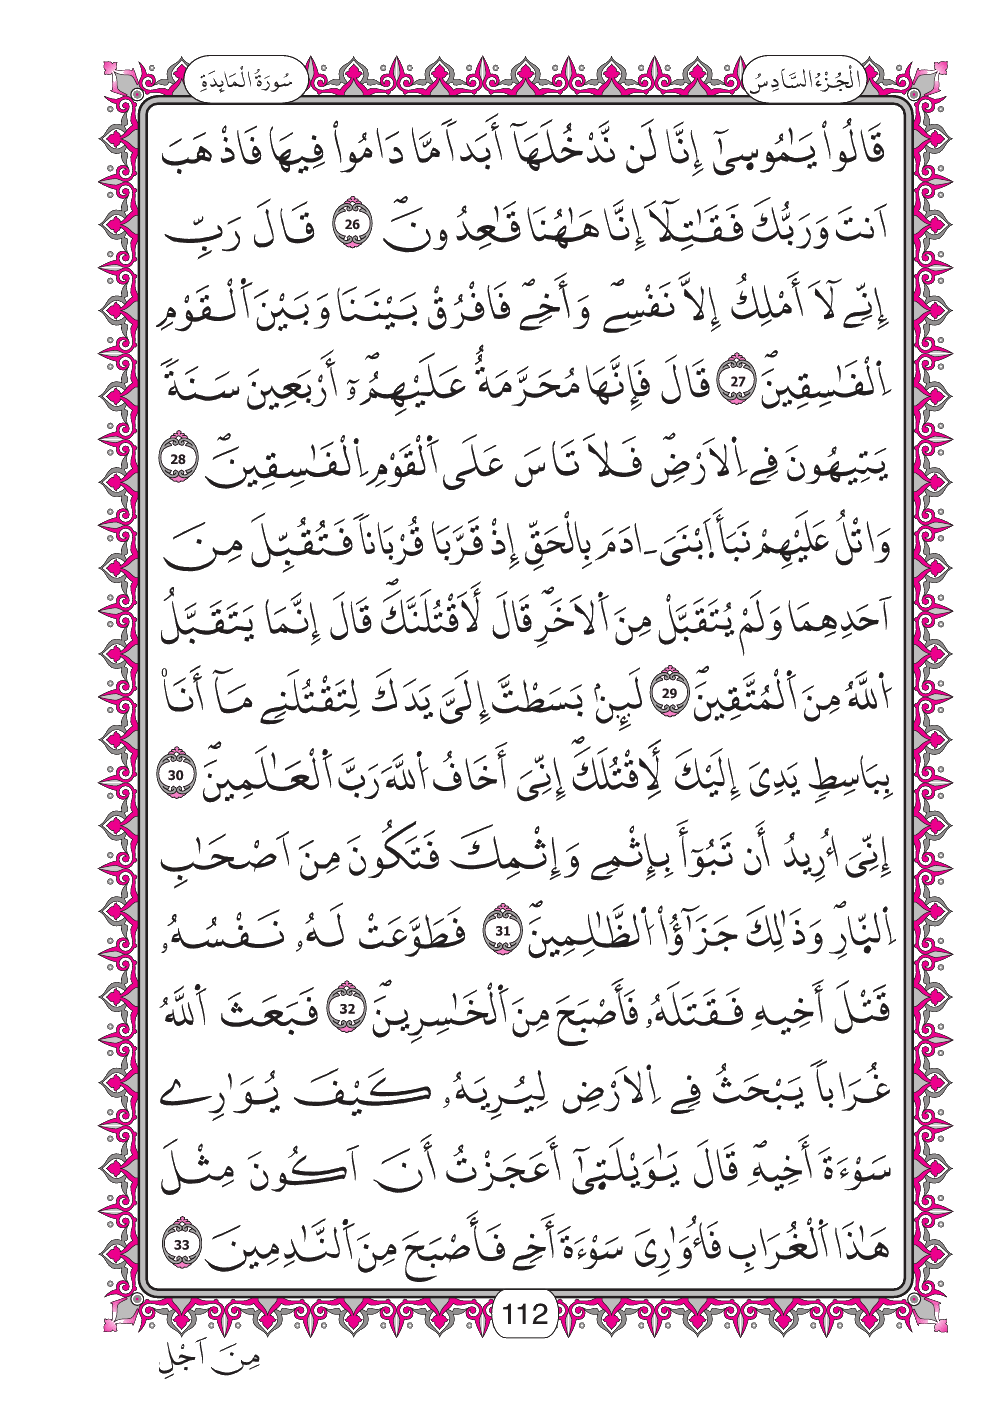 الْجُزْءُ السَّادِسُ
سُورَةُ الْمَائِدَةِ
قَالُواْ يَٰمُوسۭيٰٓ إِنَّا لَن نَّدْخُلَهَآ أَبَداٗ مَّا دَامُواْ فِيهَا فَاذْهَبَ
اَنتَ وَرَبُّكَ فَقَٰتِلَآ إِنَّا هَٰهُنَا قَٰعِدُونَۖ 26 قَالَ رَبِّ
إِنِّے لَآ أَمْلِكُ إِلَّا نَفْسِےۖ وَأَخِےۖ فَافْرُقْ بَيْنَنَا وَبَيْنَ اَ۬لْقَوْمِ
اِ۬لْفَٰسِقِينَۖ 27 قَالَ فَإِنَّهَا مُحَرَّمَةٌ عَلَيْهِمُۥٓۖ أَرْبَعِينَ سَنَةٗ
يَتِيهُونَ فِے اِ۬لَارْضِۖ فَلَا تَاسَ عَلَى اَ۬لْقَوْمِ اِ۬لْفَٰسِقِينَۖ 28
وَاتْلُ عَلَيْهِمْ نَبَأَ اَ۪بْنَيَ ـ ادَمَ بِالْحَقِّ إِذْ قَرَّبَا قُرْبَاناٗ فَتُقُبِّلَ مِنَ
اَحَدِهِمَا وَلَمْ يُتَقَبَّلْ مِنَ اَ۬لَاخَرِۖ قَالَ لَأَقْتُلَنَّكَۖ قَالَ إِنَّمَا يَتَقَبَّلُ
اُ۬للَّهُ مِنَ اَ۬لْمُتَّقِينَۖ 29 لَئِنۢ بَسَطتَّ إِلَيَّ يَدَكَ لِتَقْتُلَنِے مَآ أَنَا۠
بِبَاسِطٖ يَدِيَ إِلَيْكَ لِأَقْتُلَكَۖ إِنِّيَ أَخَافُ اُ۬للَّهَ رَبَّ اَ۬لْعَٰلَمِينَۖ 30
إِنِّيَ أُرِيدُ أَن تَبُوٓأَ بِإِثْمِے وَإِثْمِكَ فَتَكُونَ مِنَ اَصْحَٰبِ
اِ۬لنّ۪ارِۖ وَذَٰلِكَ جَزَٰٓؤُاْ اُ۬لظَّٰلِمِينَۖ 31 فَطَوَّعَتْ لَهُۥ نَفْسُهُۥ
قَتْلَ أَخِيهِ فَقَتَلَهُۥ فَأَصْبَحَ مِنَ اَ۬لْخَٰسِرِينَۖ 32 فَبَعَثَ اَ۬للَّهُ
غُرَاباٗ يَبْحَثُ فِے اِ۬لَارْضِ لِيُرِيَهُۥ كَيْفَ يُوَٰرِے
سَوْءَةَ أَخِيهِۖ قَالَ يَٰوَيْلَت۪يٰٓ أَعَجَزْتُ أَنَ اَكُونَ مِثْلَ
هَٰذَا اَ۬لْغُرَابِ فَأُوَٰرِيَ سَوْءَةَ أَخِے فَأَصْبَحَ مِنَ اَ۬لنَّٰدِمِينَۖ 33
112
مِنَ اَجْلِ